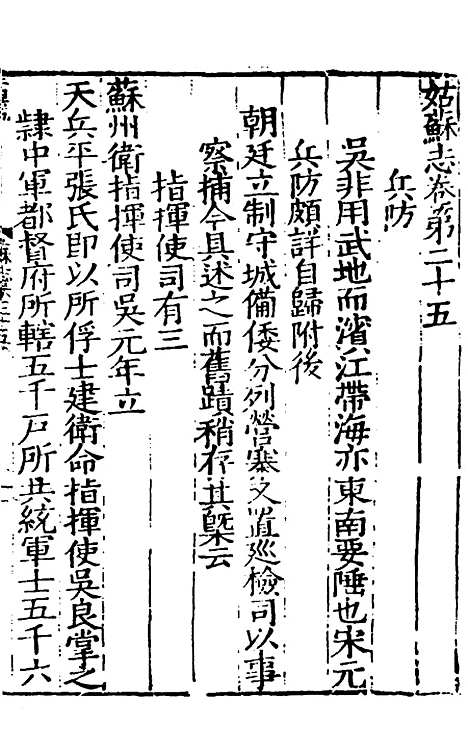 姑蘇志卷第二十五
兵防
吳非用武地而濱江帶海亦東南要陲也宋元
兵防頗詳自歸附後
朝廷立制守城備倭分列營寨又置廵檢司以事
察捕今具述之而舊蹟稍存其槩云
指揮使司有三
蘇州衛指揮使司吳元年立
天兵平張氏即以所俘士建衛命指揮使吳良掌之
隷中軍都督府所轄五千戶所共統軍士五千六